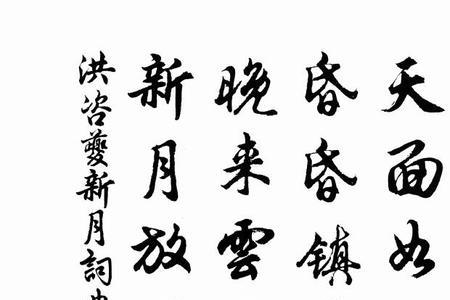 天面如
昏昏镇
晚来雲
新月放
洪咨夔新月詞